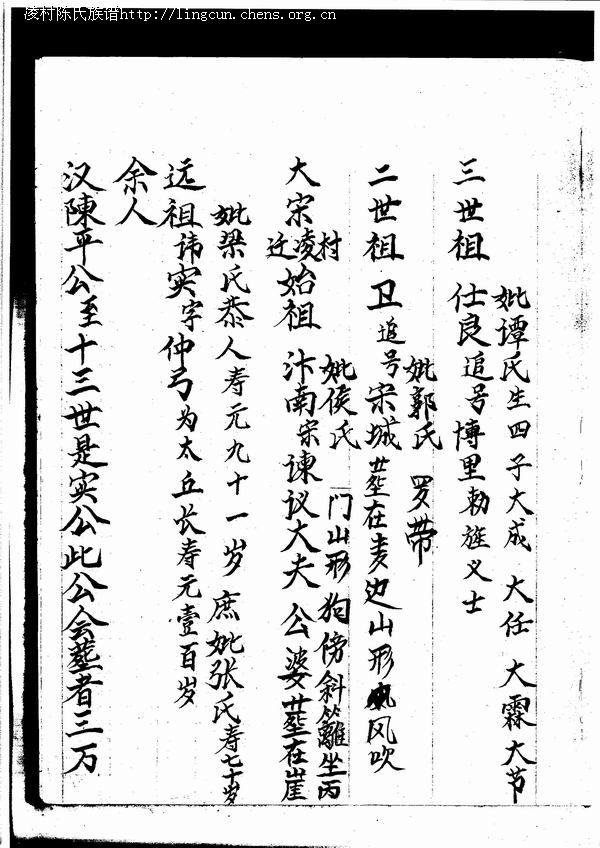 凌村陈氏族谱http://lingcun.chens.org.cn
汉陳平公至十三世是实公此公会葬者三万
余人
远祖讳实字仲弓为太丘长寿元壹百岁
妣梁氏恭人寿元九十一岁 庶妣张氏寿七十岁
大宋迁凌村始祖 汴南宋谏议大夫 公婆葬在崖
妣侯氏 门山形狗傍斜篱坐丙
二世祖 卫 追号宋城 葬在麦边山形风吹
妣郭氏 罗带
三世祖 仕良追号博里勅旌义士
妣谭氏生四子大成 大任 大霖 大节